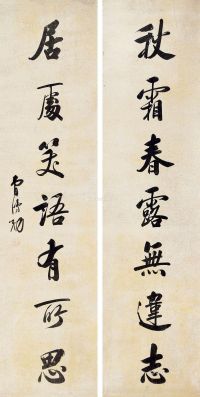 秋霜春露無違志
居處笑語有所思